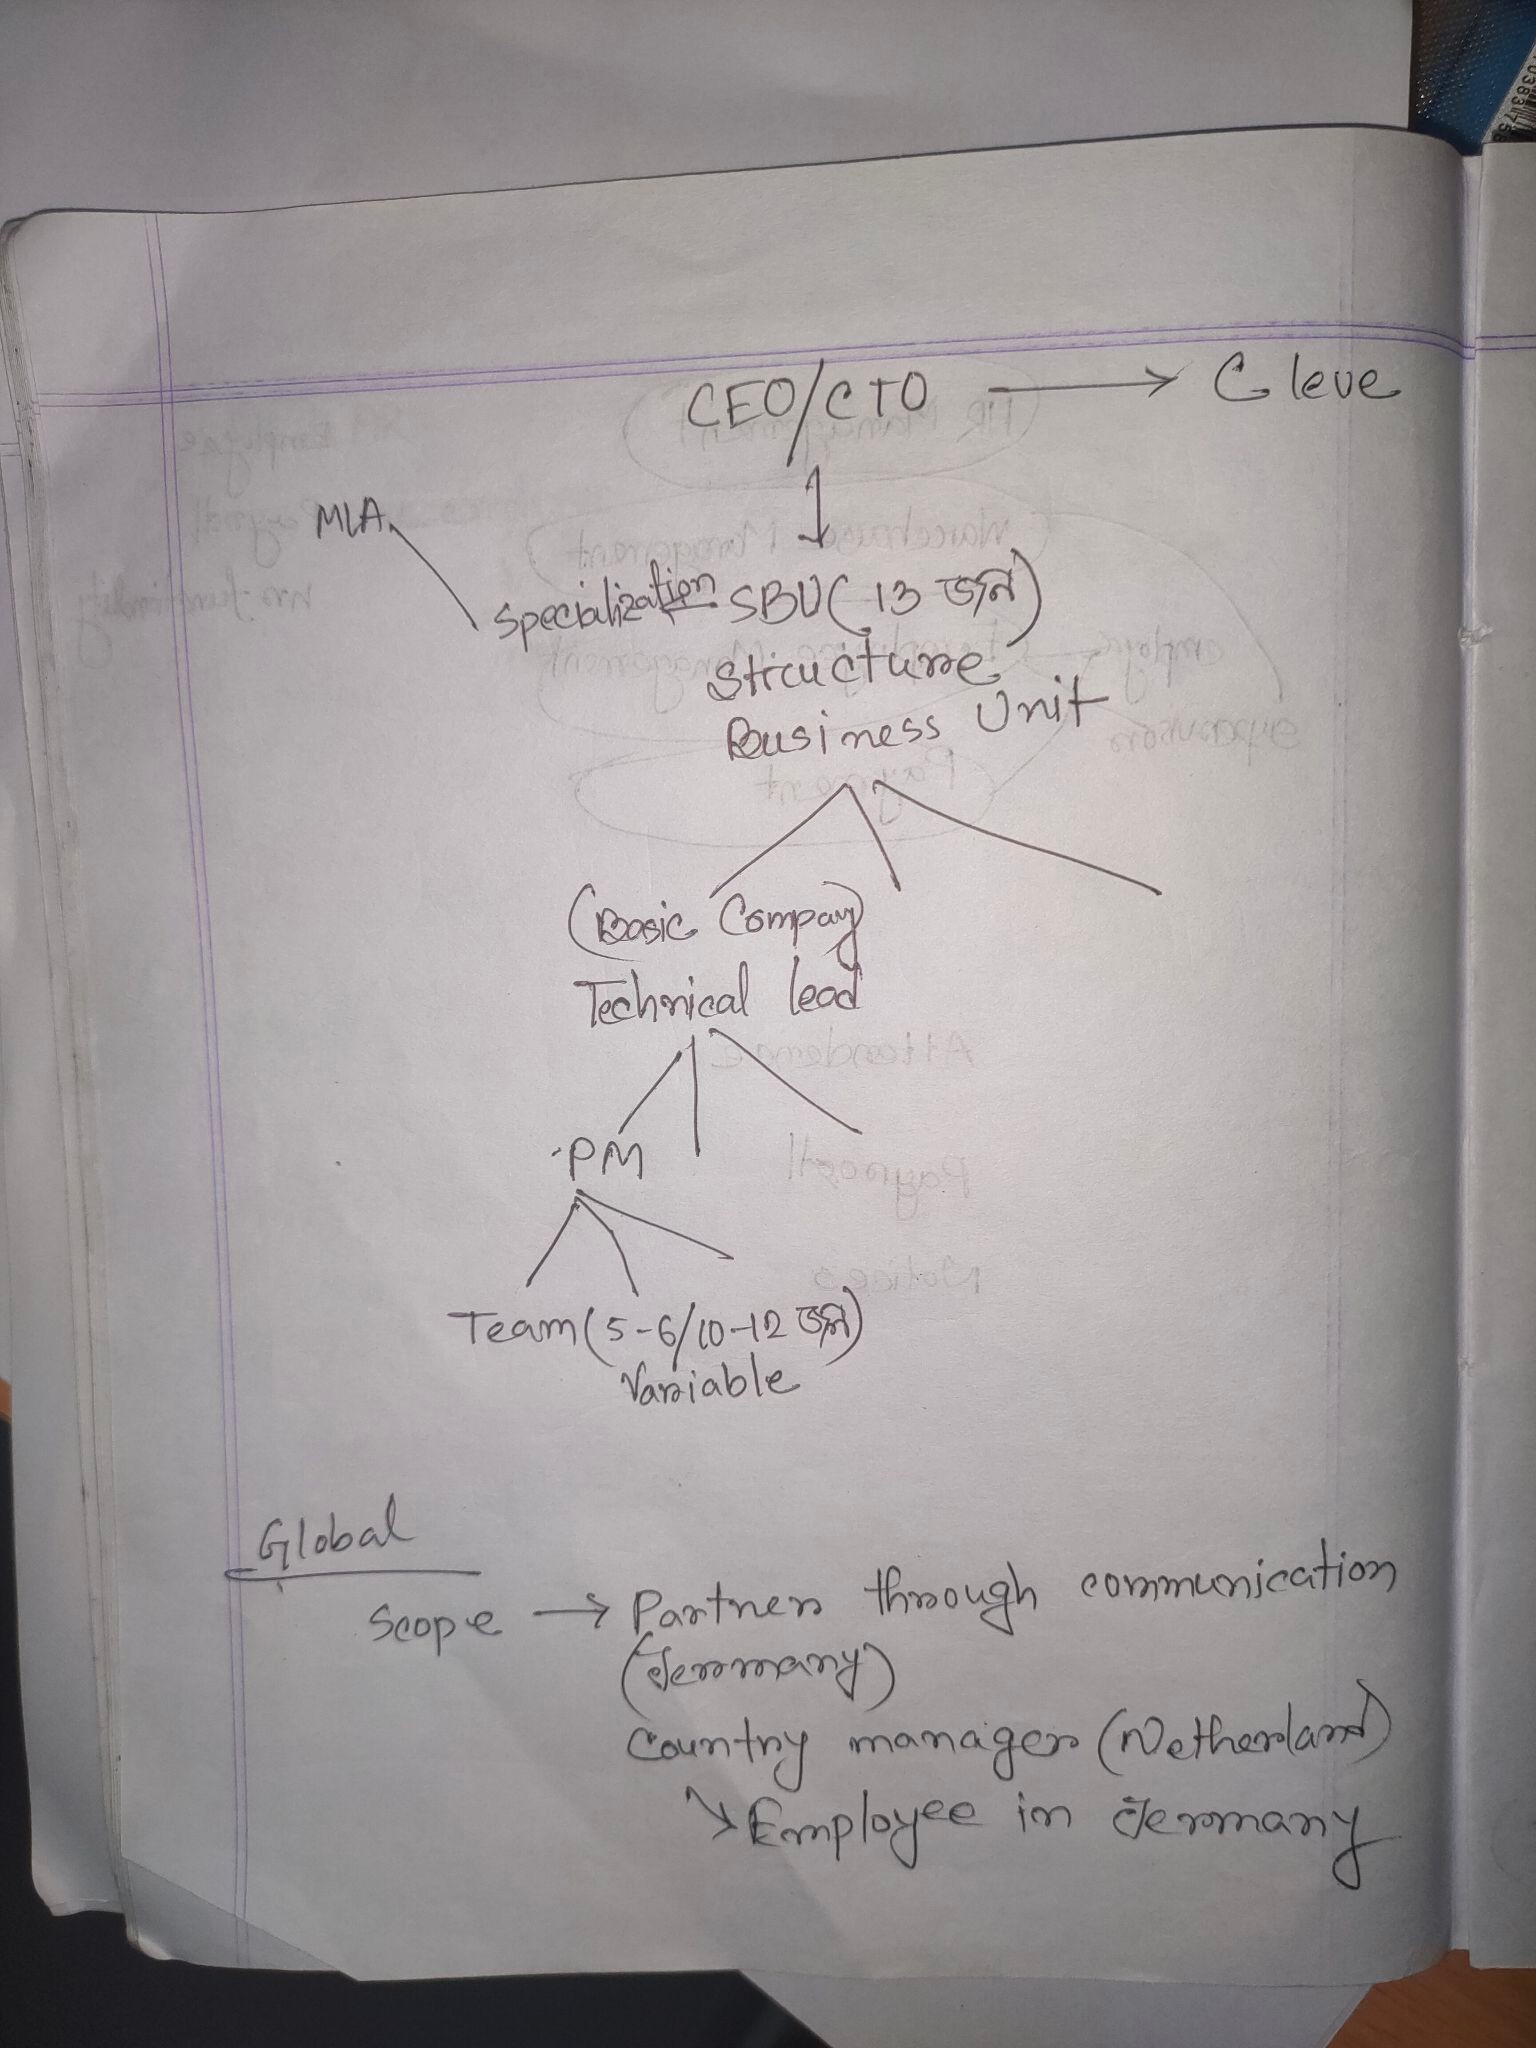 CEO/CTO → C leve
MLA
specialization SBU (13 জন)
structure
Business Unit
(Basic Company)
Technical lead
PM
Team (5-6/10-12 জন)
Variable
Global
Scope → Partner through communication
(Germany)
Country manager (Netherland)
↘ Employee in Germany